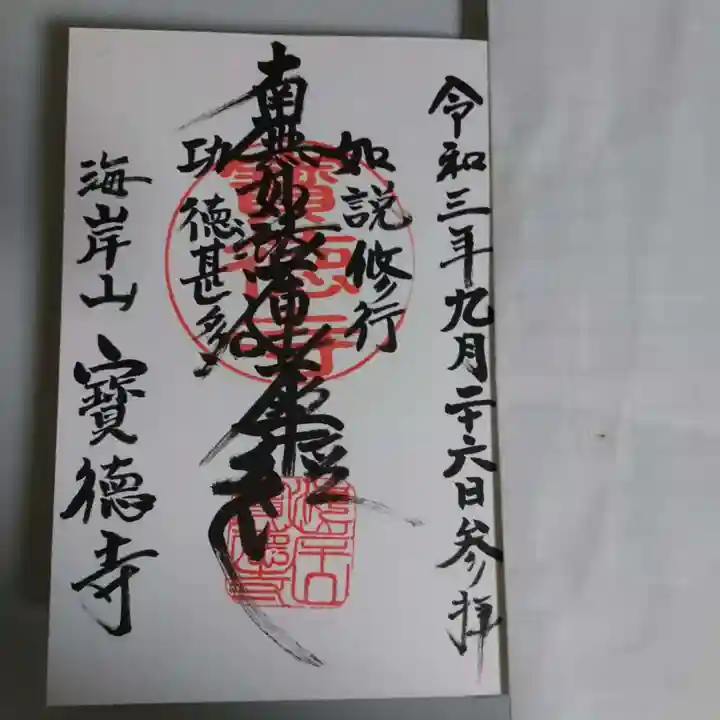 令和三年九月二十六日参拝
如説修行
南無妙法蓮華経
功徳甚多
海岸山 寶徳寺
寶徳寺